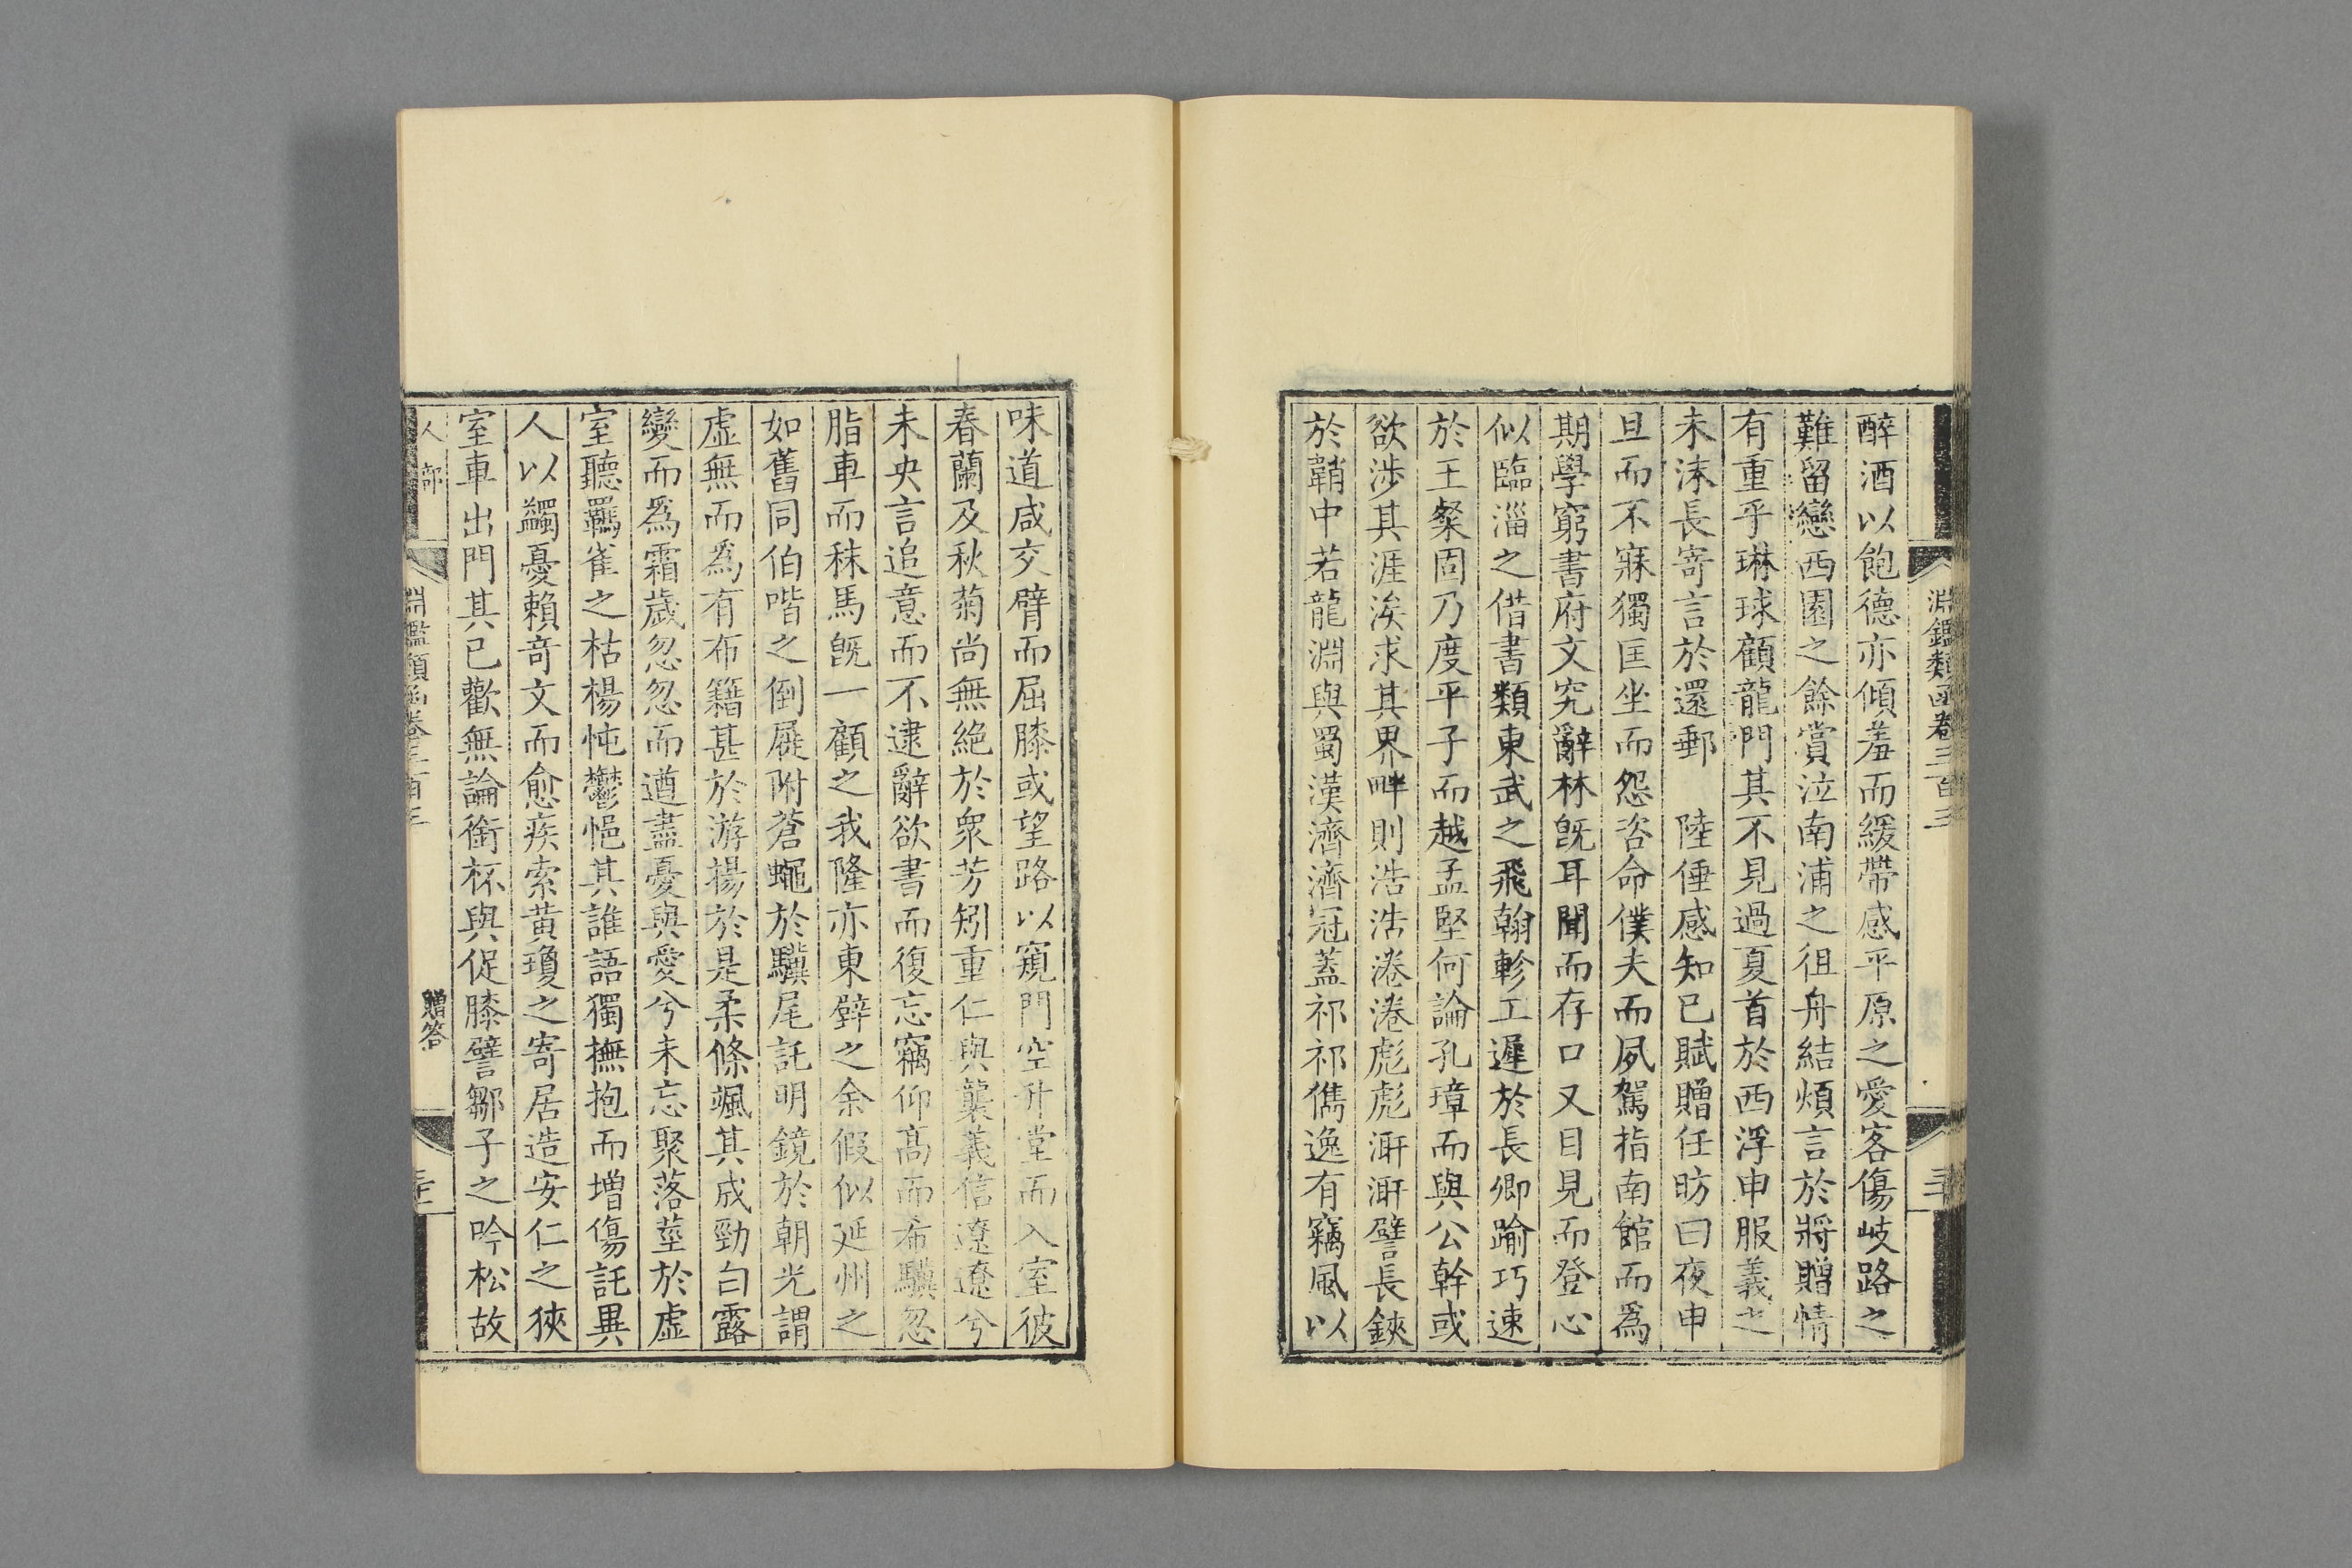 淵鑑類函卷三百三
醉酒以飽德亦傾羞而緩帶感平原之愛客傷岐路之
難留戀西園之餘賞泣南浦之徂舟結煩言於將贈情
有重乎琳球顧龍門其不見過夏首於西浮申服義之
未沫長寄言於還郵　陸倕感知己賦贈任昉曰夜申
旦而不寐獨匡坐而怨咨命僕夫而夙駕指南館而爲
期學窮書府文究辭林旣耳聞而存口又目見而登心
似臨淄之借書類東武之飛翰軫工遲於長卿踰巧速
於王粲固乃度平子而越孟堅何論孔璋而與公幹或
欲涉其涯涘求其界畔則浩浩淃淃彪彪澣澣譬長鋏
於鞘中若龍淵與蜀漢濟濟冠蓋祁祁儁逸有竊風以
味道咸交臂而屈膝或望路以窺門空升堂而入室彼
春蘭及秋菊尚無絕於衆芳矧重仁與襲義信遼遼兮
未央言追意而不逮辭欲書而復忘竊仰高而希驥忽
脂車而秣馬旣一顧之我隆亦東壁之余假似延州之
如舊同伯喈之倒屣附蒼蠅於驥尾託明鏡於朝光謂
虛無而爲有布籍甚於游揚於是柔條颯其成勁白露
變而爲霜歲忽忽而遒盡憂與愛兮未忘聚落莖於虛
室聽羈雀之枯楊忳鬱悒其誰語獨撫抱而增傷託異
人以蠲憂賴奇文而愈疾索黃瓊之寄居造安仁之狹
室車出門其已歡無論銜杯與促膝譬鄒子之吟松故
人部
淵鑑類函卷三百三
贈答